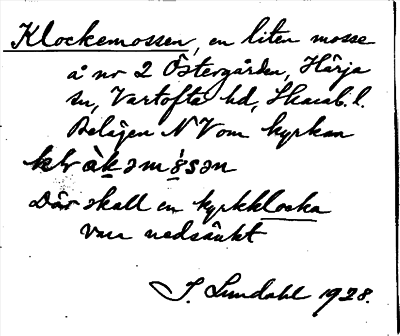 Klockemossen, en liten mosse
å nr 2 Östergården, Härja
sn, Vartofta hd, Skarab. l.
Belägen NV om kyrkan
klɔ̀kəmɔ̀sən
Där skall en kyrkklocka
vara nedsänkt
S. Lundahl 1928.